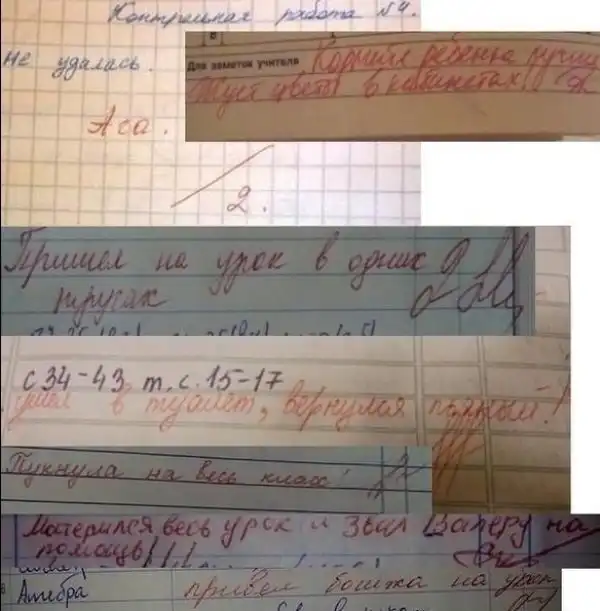 Контрольная работа №4.
Не удалась.
Ага.
2.
Для заметок учителя Кормите ребенка лучше
Жуёт цветы в кабинетах!
Пришел на урок в одних
трусах
с 34-43 т. с. 15-17
ушел в туалет, вернулся пьяный!
Пукнула на весь класс!
Матерился весь урок и звал Валеру на
помощь!!!
Алгебра привел бомжа на урок